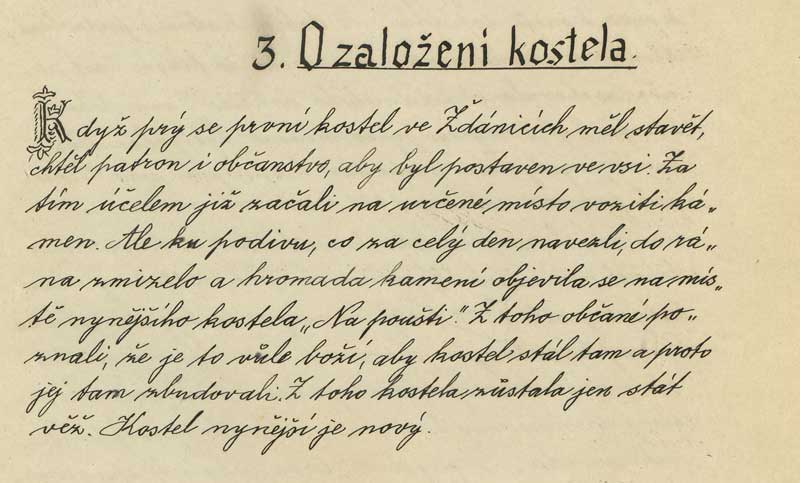 3. O založení kostela.
Když prý se první kostel ve Ždánicích měl stavět,
chtěl patron i občanstvo, aby byl postaven ve vsi. Za
tím účelem již začali na určené místo voziti ká„
men. Ale ku podivu, co za celý den navezli, do rá„
na zmizelo a hromada kamení objevila se na mís„
tě nynějšího kostela „Na poušti.“ Z toho občané po„
znali, že je to vůle boží, aby kostel stál tam a proto
jej tam zbudovali. Z toho kostela zůstala jen stát
věž. Kostel nynější je nový.